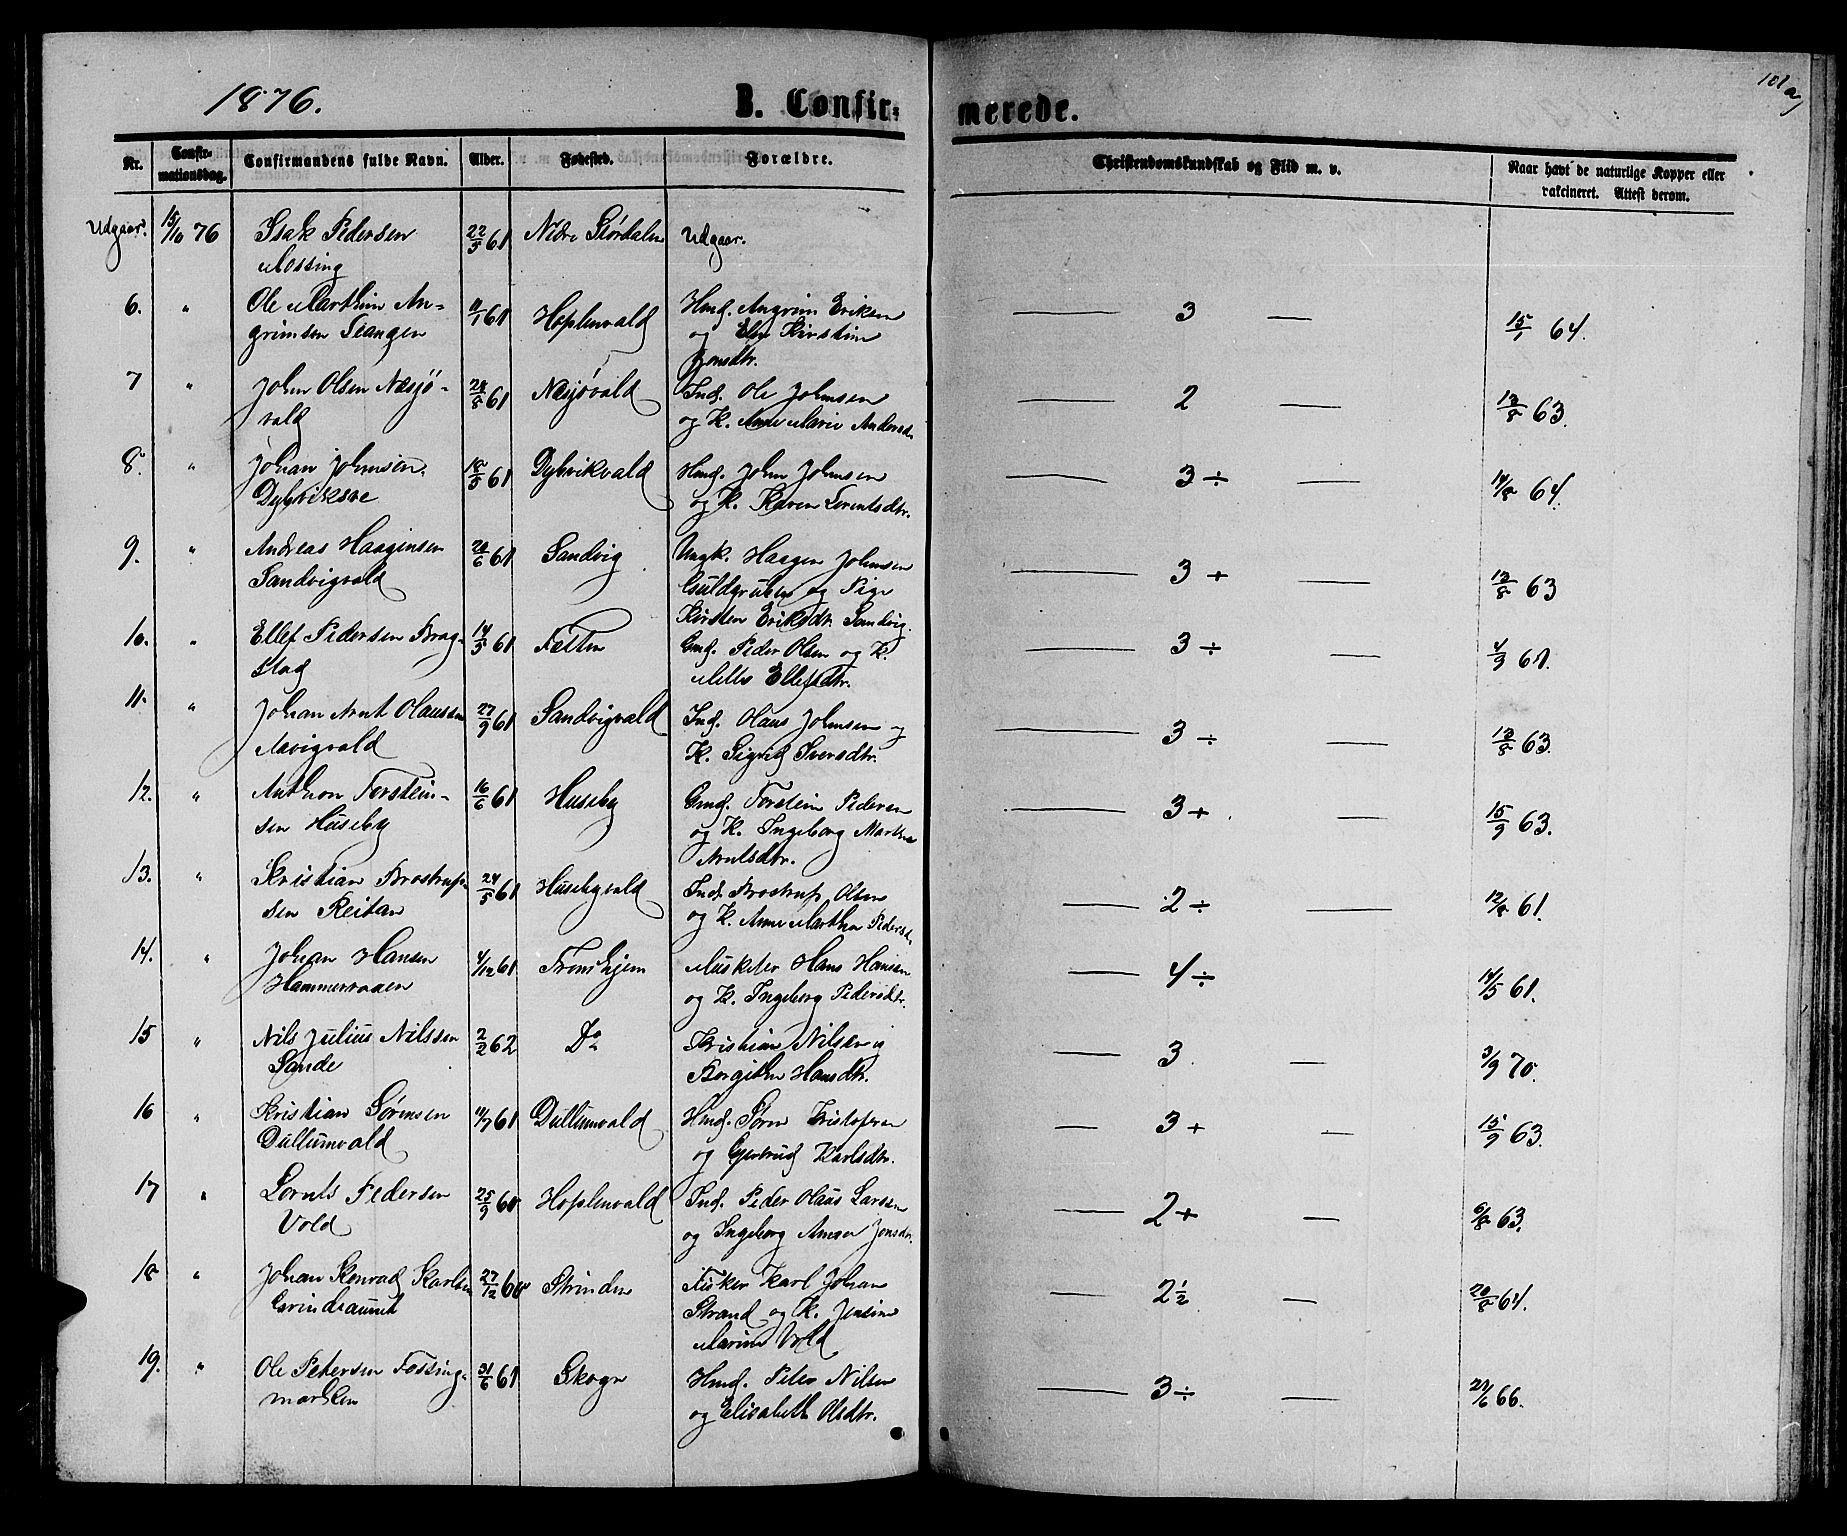 1876.
B. Confirmerede.
101a
Nr. Confirmationsdag. Confirmandens fulde Navn. Alder. Fødested. Forældre. Christendomskundskab og Flid m. v. Naar havt de naturlige Kopper eller vakcineret. Attest derom.
Udgaar. 15/10 76 Isak Pedersen 22/5 61 Nedre Størdalen Udgaar.
Mossing
6. " Ole Marthin An- 11/1 61 Hoplenvald Hmd. Angrim Eriksen 3 — 15/1 64.
grimsen Stangen og Kirstine
Jonsdtr.
7 " John Olsen Næsjø- 28/8 61 Næsjøvald Ind. Ole Johnsen 2 — 13/8 63.
vald og K. Anne Marie Andersd.
8. " Johan Johnsen 18/5 61 Dybvikvald Hmd. John Johnsen 3 ÷ — 14/8 64.
Dybviksve og K. Karen Lorentsdtr.
9. " Andreas Haagensen 20/6 61 Sandvig Ungk. Haagen Johnsen 3 + — 13/8 63
Sandvigvald Guldgruben og Pige
Kirsten Eriksdtr. Sandvig.
10. " Ellef Pedersen Brag- 14/5 61 Fætten Gmd. Peder Olsen og K. 3 ÷ — 4/9 61.
stad Mette Ellefsdtr.
11. " Johan Arnt Olaussen 27/9 61 Sandvigvald Ind. Olaus Johnsen og 3 ÷ — 13/8 63.
Aavigvald K. Sigrid Iversdtr.
12. " Anthon Torstein- 16/6 61 Huseby Gmd. Torstein Pedersen 3 + — 15/9 63.
sen Huseby og K. Ingeborg Martha
Arntsdtr.
13. " Kristian Brostrup- 24/5 61 Husebyvald Ind. Brostrup Olsen 2 ÷ — 12/8 61.
sen Reitan og K. Anne Martha Pedersd.
14. " Johan Hansen 4/12 61 Tronhjem Musketer Hans Hansen 4 ÷ 14/5 61.
Hammervaaen og K. Ingeborg Pedersdtr.
15 " Nils Julius Nilssen 2/2 62 Do Kristian Nilsen og 3 — 3/9 70.
Sande Borgithe Hansdtr.
16 " Kristian Sørensen 11/7 61 Dullumvald Hmd. Sørn Kristofersen 3 + — 15/9 63.
Dullumvald og Gjertrud Karlsdtr.
17 " Lornts Pedersen 25/9 60 Hoplenvald Ind. Peder Olaus Larsen 2 + — 6/8 63.
Vold og Ingeborg Anna Jonsdtr.
18 " Johan Konrad Karlsen 27/12 60 Strinden Fisker Karl Johan 2½ — 20/8 64.
Grindraumet Strand og K. Jensine
Marine Vold
19. " Ole Petersen Fossing- 21/6 61 Skogn Hmd. Peter Nilsen 3 ÷ — 27/6 66.
marken og Elisabeth Olsdtr.